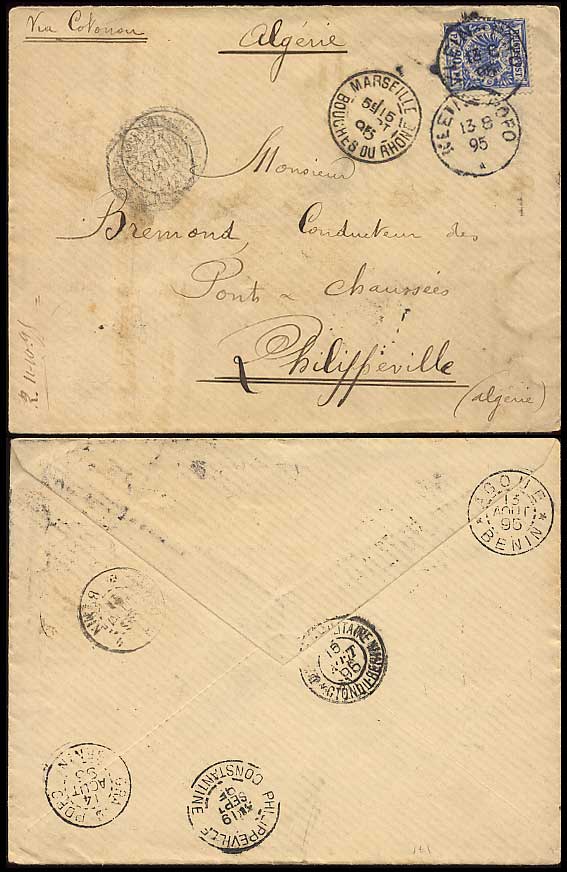 Via Cotonou
Algérie
MARSEILLE
15
95
BOUCHES DU RHONE
KLEIN-POPO
13 8
95
Monsieur
Bremond, Conducteur des
Pont & Chaussées
Philippeville
(algérie)
R 11-10-95
AGOUE
13
AOUT
95
BENIN
BENIN
15
95
GRAND POPO
14
AOUT
95
BENIN
PHILIPPEVILLE
19
SEPT
95
CONSTANTINE